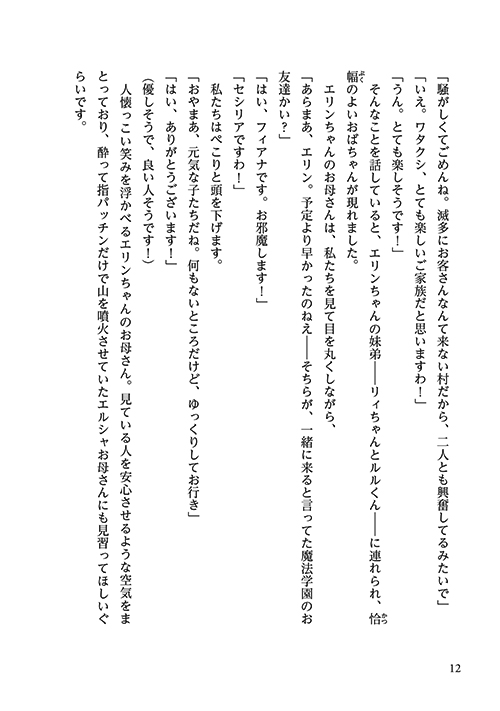 「騒がしくてごめんね。滅多にお客さんなんて来ない村だから、二人とも興奮してるみたいで」
「いえ。ワタクシ、とても楽しいご家族だと思いますわ！」
「うん。とても楽しそうです！」
そんなことを話していると、エリンちゃんの妹弟――リィちゃんとルルくん――に連れられ、恰
幅のよいおばちゃんが現れました。
エリンちゃんのお母さんは、私たちを見て目を丸くしながら、
「あらまあ、エリン。予定より早かったのねえ――そちらが、一緒に来ると言ってた魔法学園のお
友達かい？」
「はい、フィアナです。お邪魔します！」
「セシリアですわ！」
私たちはぺこりと頭を下げます。
「おやまあ、元気な子たちだね。何もないところだけど、ゆっくりしてお行き」
「はい、ありがとうございます！」
（優しそうで、良い人そうです！）
人懐っこい笑みを浮かべるエリンちゃんのお母さん。見ている人を安心させるような空気をま
とっており、酔って指パッチンだけで山を噴火させていたエルシャお母さんにも見習ってほしいぐ
らいです。
12